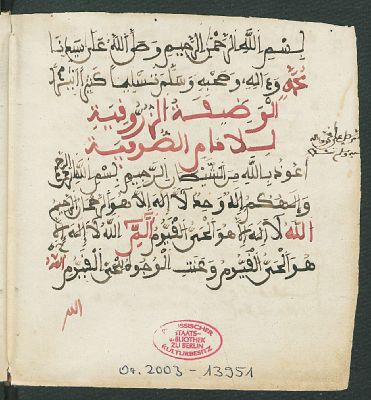 بسم الله الرحمن الرحيم وصلى الله على سيدنا
محمد وعلى اله وصحبه وسلم تسليما كثيرا
الوظيفة الزروقية
للامام الصوفية
اعوذ بالله من الشيطان الرجيم بسم الله الرحمن الرحيم
وإلهكم إله وحد لا اله الا هو الرحمن الرحيم
الله لا إله إلا هو الحي القيوم الم الله لا إله إلا
هو الحي القيوم وعنت الوجوه للحي القيوم الله
الله
STAATS-
BIBLIOTHEK
ZU BERLIN
KULTURBESITZ
Or. 2003 - 13951